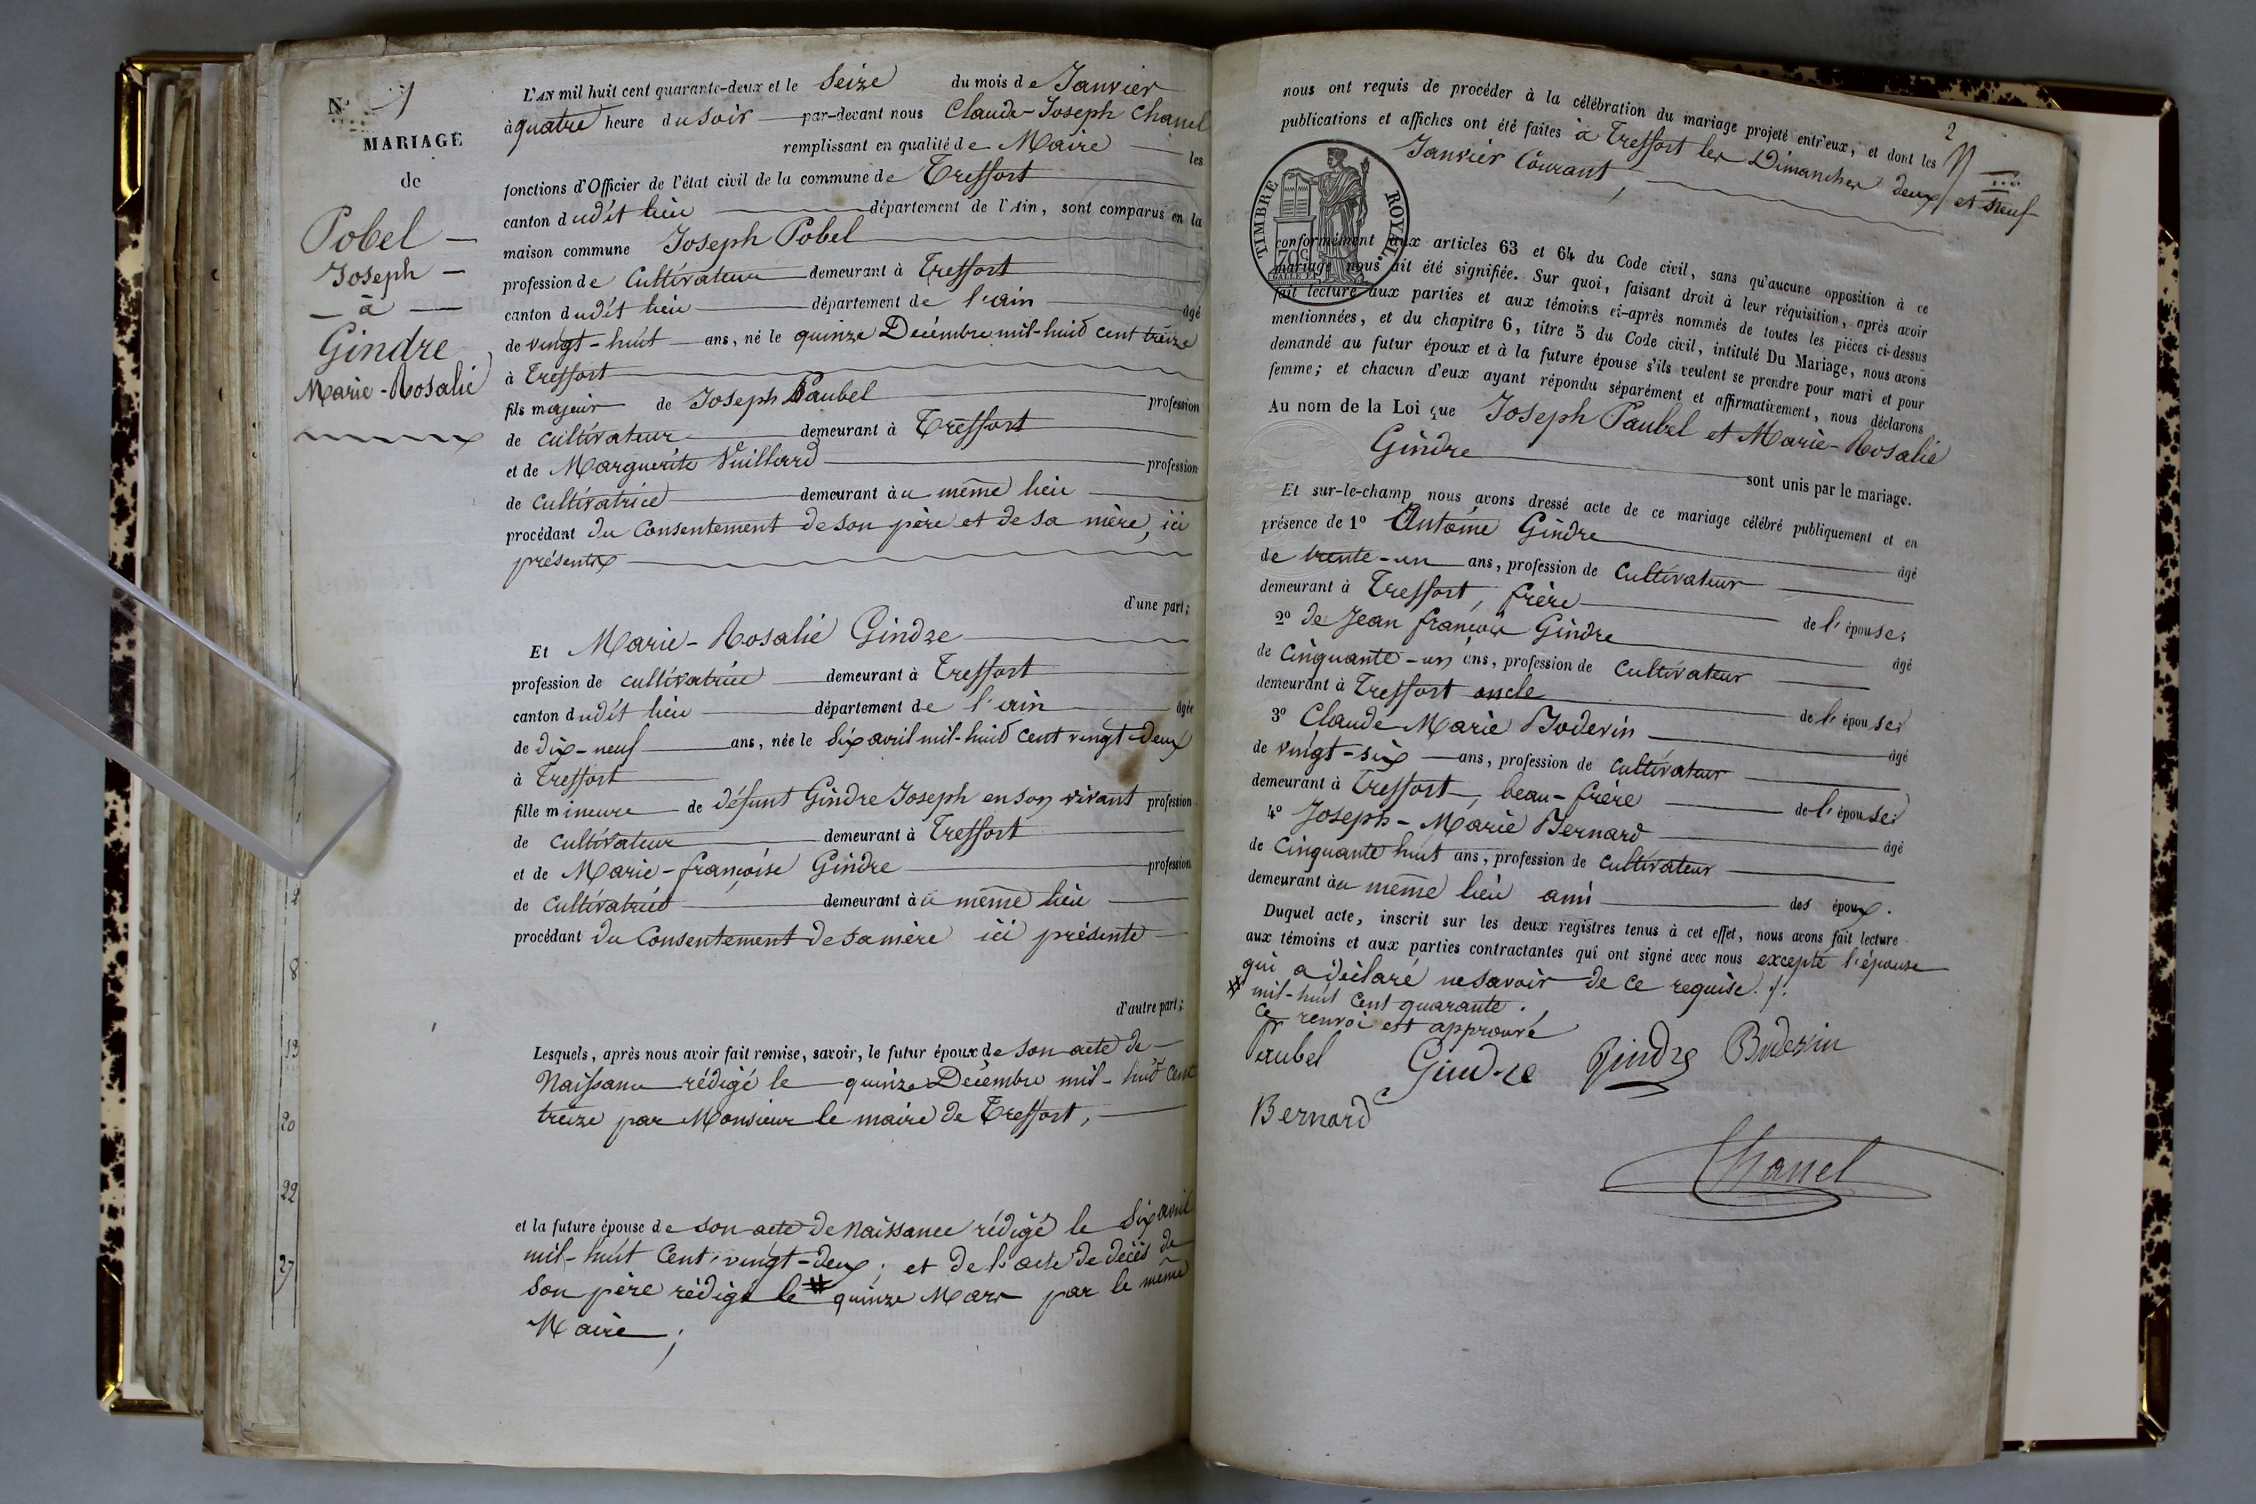 N° 1
MARIAGE
de
Pobel
Joseph
à
Gindre
Marie-Rosalie
L'AN mil huit cent quarante-deux et le Seize du mois de Janvier
à quatre heure du Soir par-devant nous Claude-Joseph Chanel
remplissant en qualité de Maire les
fonctions d'Officier de l'état civil de la commune de Treffort
canton dudit lieu département de l'Ain, sont comparus en la
maison commune Joseph Pobel
profession de Cultivateur demeurant à Treffort
canton dudit lieu département de l'ain âgé
de vingt-huit ans, né le quinze Décembre mil-huit cent treize
à Treffort
fils majeur de Joseph Paubel profession
de cultivateur demeurant à Treffort
et de Marguerite Vuillard profession
de cultivatrice demeurant au même lieu
procédant du Consentement de son père et de sa mère, ici
présents
d'une part;
Et Marie-Rosalie Gindre
profession de cultivatrice demeurant à Treffort
canton dudit lieu département de l'ain âgée
de dix-neuf ans, née le Six avril mil-huit cent vingt-deux
à Treffort
fille mineure de défunt Gindre Joseph en son vivant profession
de cultivateur demeurant à Treffort
et de Marie-françoise Gindre profession
de cultivatrice demeurant au même lieu
procédant du Consentement de sa mère ici présente
d'autre part;
Lesquels, après nous avoir fait remise, savoir, le futur époux de son acte de
Naissance rédigé le quinze Décembre mil-huit cent
treize par Monsieur le maire de Treffort,
et la future épouse de son acte de Naissance rédigé le Six avril
mil-huit Cent vingt-deux; et de l'acte de décès de
son père rédigé le # quinze Mars par le même
Maire;
8
19
20
22
27
2
nous ont requis de procéder à la célébration du mariage projeté entr'eux, et dont les
publications et affiches ont été faites à Treffort les Dimanches deux et neuf
Janvier Courant,
TIMBRE ROYAL.
70c
conformément aux articles 63 et 64 du Code civil, sans qu'aucune opposition à ce
mariage nous ait été signifiée. Sur quoi, faisant droit à leur réquisition, après avoir
fait lecture aux parties et aux témoins ci-après nommés de toutes les pièces ci-dessus
mentionnées, et du chapitre 6, titre 5 du Code civil, intitulé Du Mariage, nous avons
demandé au futur époux et à la future épouse s'ils veulent se prendre pour mari et pour
femme; et chacun d'eux ayant répondu séparément et affirmativement, nous déclarons
Au nom de la Loi que Joseph Paubel et Marie-Rosalie
Gindre sont unis par le mariage.
Et sur-le-champ nous avons dressé acte de ce mariage célébré publiquement et en
présence de 1° Antoine Gindre âgé
de trente-un ans, profession de Cultivateur
demeurant à Treffort, frère de l'épouse;
2° de Jean françois Gindre âgé
de cinquante-un ans, profession de cultivateur
demeurant à Treffort oncle de l'épouse;
3° Claude Marie Bodevin âgé
de vingt-six ans, profession de cultivateur
demeurant à Treffort, beau-frère de l'épouse;
4° Joseph-Marie Bernard âgé
de Cinquante huit ans, profession de cultivateur
demeurant au même lieu ami des époux.
Duquel acte, inscrit sur les deux registres tenus à cet effet, nous avons fait lecture
aux témoins et aux parties contractantes qui ont signé avec nous excepté l'épouse
qui a déclaré ne savoir de ce requise.
# mil-huit cent quarante.
Ce renvoi est approuvé
Paubel Gindre Gindre Bodevin
Bernard
Chanel